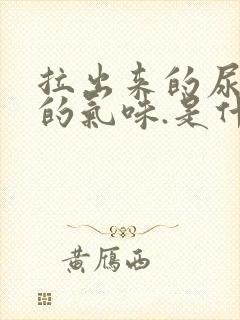 拉出来的尿
的氣味.是什
黄鴈西